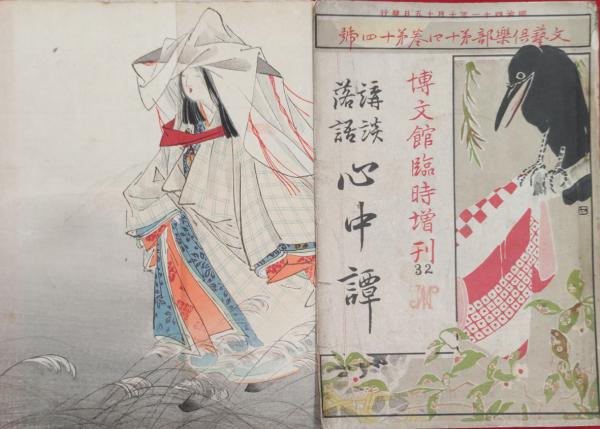 明治四十一年十月十五日發行
文藝倶樂部第十四卷第十四號
博文館臨時增刊
32
講談
落語
心中譚